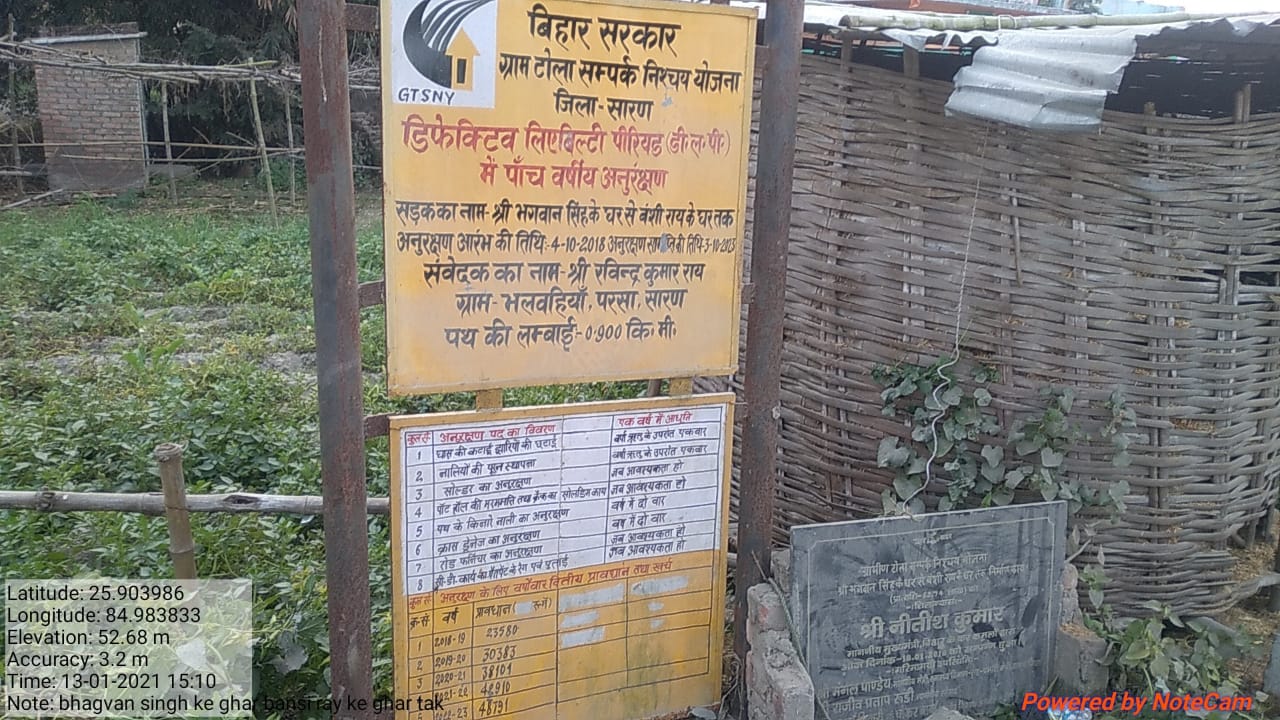 GTSNY
बिहार सरकार
ग्राम टोला सम्पर्क निश्चय योजना
जिला-सारण
डिफेक्टिव लिएबिल्टी पीरियड (डी.ल.पी.)
में पाँच वर्षीय अनुरंक्षण
सड़क का नाम- श्री भगवान सिंह के घर से बंशी राय के घर तक
अनुरक्षण आरंभ की तिथि:-4-10-2018 अनुरक्षण की तिथि-3-10-2023
संवेदक का नाम-श्री रविन्द्र कुमार राय
ग्राम- भलवहियाँ, परसा, सारण
पथ की लम्बाई:-0.900 कि॰ मी॰
अनुरक्षण पद का विवरण एक वर्ष में आवृति
1 घास की कटाई झारियों की छटाई वर्षा ऋतु के उपरांत एकबार
2 नालियों की पून स्थापना वर्षा ऋतु के उपरांत एकबार
3 सोल्डर का अनुरक्षण जब आवश्यकता हो
4 पॉट हॉल की मरममति तथा क्रेक का सीलिंग काय जब आवश्यकता हो
5 पथ के किनारे नाली का अनुरक्षण वर्ष में दो बार
6 क्रास ड्रेनेज का अनुरक्षण वर्ष में दो बार
7 रोड फर्निचर का अनुरक्षण जब आवश्यकता हो
8 सी.डी. कार्य का पैरापेट के रंग एवं पुताई जब आवश्यकता हो
अनुरक्षण के लिए वर्षोवार वित्तीय प्रावधान तथा खर्च
क्र.सं. वर्ष प्रावधान
1 2018-19 23580
2 2019-20 30383
3 2020-21 38101
2021-22 42910
48791
ग्रामीण टोला सम्पर्क निश्चय योजना
श्री भगवान सिंह के घर से बंशी राय के घर तक निर्माण कार्य
श्री नीतीश कुमार
माननीय मुख्यमंत्री, बिहार के कर कमलों द्वारा
श्री मंगल पाण्डेय
राजीव प्रताप रूडी
Latitude: 25.903986
Longitude: 84.983833
Elevation: 52.68 m
Accuracy: 3.2 m
Time: 13-01-2021 15:10
Note: bhagvan singh ke ghar bansi ray ke ghar tak
Powered by NoteCam